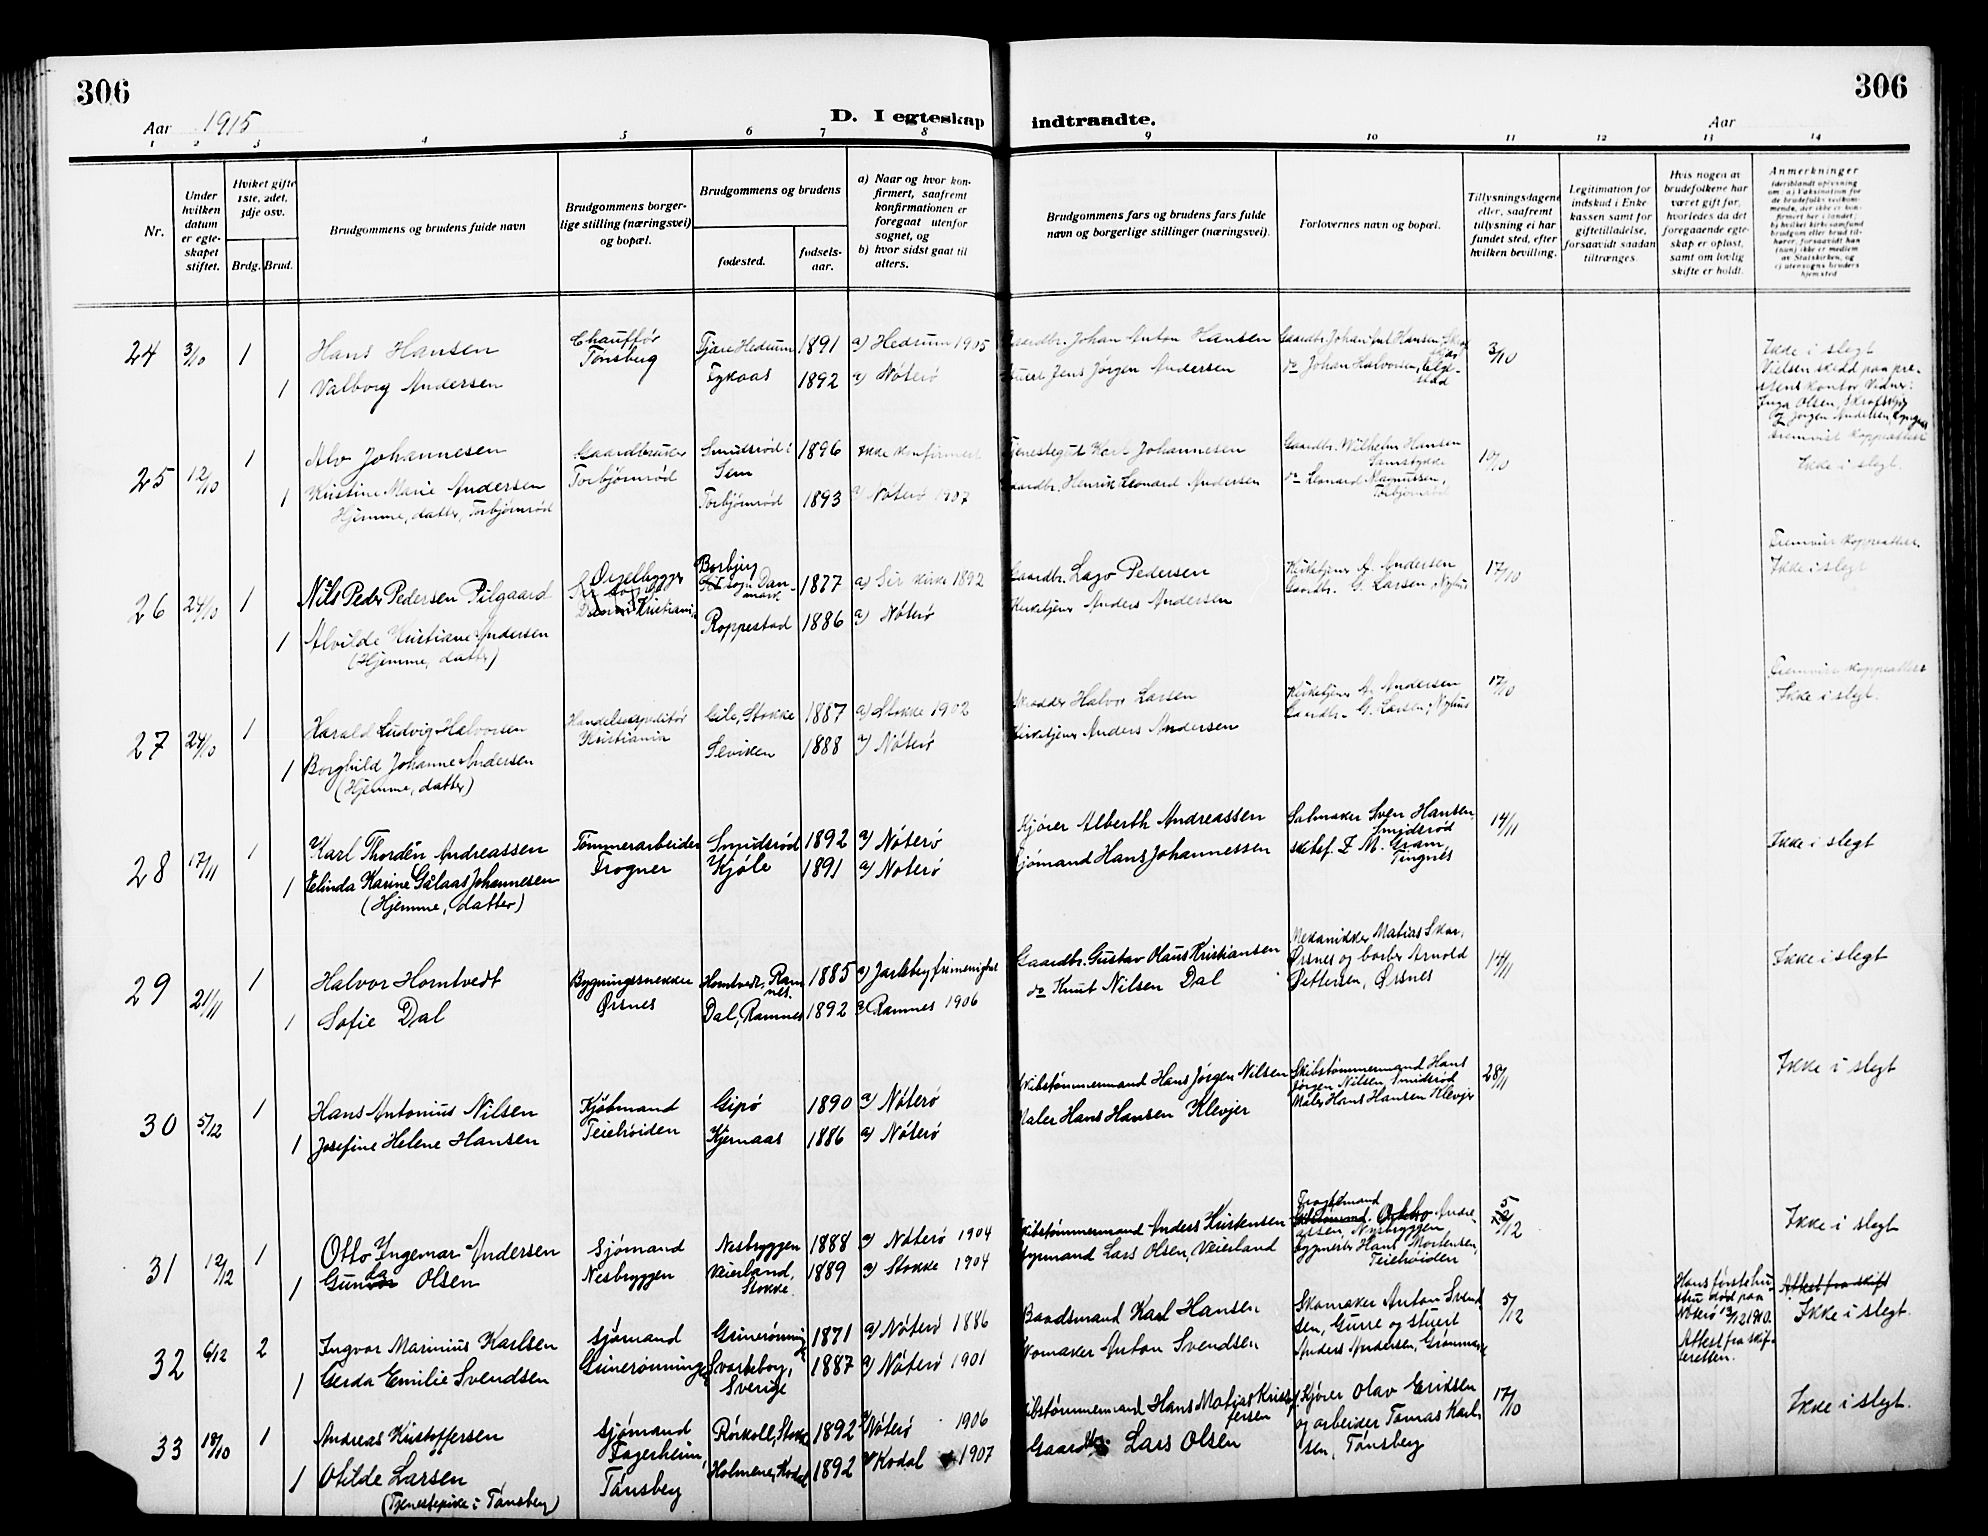 306
306
Aar 1915
D. I egteskap indtraadte.
Aar
1 2 3 4 5 6 7 8 9 10 11 12 13 14
Nr.
Under hvilken datum er egteskapet stiftet.
Hvilket gifte 1ste, 2det, 3dje osv.
Brdg. Brud.
Brudgommens og brudens fulde navn
Brudgommens borgerlige stilling (næringsvei) og bopæl.
Brudgommens og brudens
fødested.
fødselsaar.
a) Naar og hvor konfirmert, saafremt konfirmationen er foregaat utenfor sognet, og
b) hvor sidst gaat til alters.
Brudgommens fars og brudens fars fulde navn og borgerlige stillinger (næringsvei).
Forlovernes navn og bopæl.
Tillysningsdagene eller, saafremt tillysning ei har fundet sted, efter hvilken bevilling.
Legitimation for indskud i Enkekassen samt for giftetilladelse, forsaavidt saadan tiltrænges
Hvis nogen av brudefolkene har været gift før, hvorledes da det foregaaende egteskap er opløst, samt om lovlig skifte er holdt.
Anmerkninger
24 3/10 1 Hans Hansen Chauffør Tønsberg Tjære Hedrum 1891 a) Hedrum 1905 Gaardbr. Johan Anton Hansen 3/10 Ikke i slegt
1 Valborg Andersen 1892 a) Nøterø Jens Jørgen Andersen do Johan Halvorsen
Vielsen skedd paa prestens kontor
Inga Olsen
Jørgen Andersen
25 12/10 1 Alv Johannesen Gaardbruker Torbjørnrød Smidsrød i Sem 1896 ikke konfirmert Tjenestegut Karl Johannesen Gaardbr. Wilhelm Hansen 10/10 Ikke i slegt.
1 Kristine Marie Andersen Torbjørnrød 1893 a) Nøterø 1907 Gaardbr. Henrik Leonard Andersen do Leonard Magnussen, Torbjørnrød
Hjemme, datter, Torbjørnrød
26 24/10 1 Nils Peder Pedersen Pilgaard Orgelbygger Kristiania Borbjerg sogn Danmark 1877 a) Sir kirke 1892 Gaardbr. Lago Pedersen Kirketjener A. Andersen 17/10 Ikke i slegt
1 Alvilde Kristiane Andersen Roppestad 1886 a) Nøterø Kirketjener Anders Andersen Gaardbr. G. Larsen, Nyhus
(Hjemme, datter)
27 24/10 1 Harald Ludvig Halvorsen Handelsexpeditør Kristiania Gile, Stokke 1887 a) Stokke 1902 Skrædder Halvor Larsen Kirketjener A. Andersen 17/10 Ikke i slegt.
1 Borghild Johanne Andersen Seviken 1888 a) Nøterø Kirketjener Anders Andersen Gaardbr. G. Larsen, Nyhus
(Hjemme, datter)
28 17/11 1 Karl Thordén Andreassen Tømmerarbeider Trogner Smidsrød 1892 a) Nøterø Kjører Alberth Andreassen Salmaker Sven Hansen, Smidsrød 14/11 Ikke i slegt
1 Karine Gålaas Johannesen Kjøle 1891 a) Nøterø Sjømand Hans Johannessen M. Gram, Tingnes
(Hjemme, datter)
29 21/11 1 Halvor Horntvedt Bygningssnekker Ørsnes Horntvedt, Ramnes. 1885 a) Jarlsberg frimenighet Gaardbr. Gustav Olaus Kristiansen Mekanikker Matias Skar, 14/11 Ikke i slegt
1 Sofie Dal Dal, Ramnes 1892 a) Ramnes 1906 do Knut Nilsen Dal Ørsnes og barber Arnold Pettersen, Ørsnes
30 5/12 1 Hans Antonius Nilsen Kjøbmand Teiehøiden Gipø 1890 a) Nøterø Skibstømmermand Hans Jørgen Nilsen Skibstømmermand Hans Jørgen Nilsen, Smidsrød 28/11 Ikke i slegt
1 Josefine Helene Hansen Kjernaas 1886 a) Nøterø Maler Hans Hansen Klevjer Maler Hans Hansen Klevjer
31 12/12 1 Otto Ingemar Andersen Sjømand Nesbryggen Nesbryggen 1888 a) Nøterø 1904 Skibstømmermand Anders Kristensen Andreassen, Nesbryggen 5/12 Ikke i slegt
1 Gunda Olsen Veierland, Stokke. 1889 a) Stokke 1904 Styrmand Lars Olsen, Veierland bygmester Hans Mortensen, Teiehøiden
32 6/12 2 Ingvar Marinius Karlsen Sjømand Grinerønningen Grinerønningen 1871 a) Nøterø 1886 Baadsmand Karl Hansen Skomaker Anton Svendsen, Gurre og stuert 5/12 Hans første hustru død paa Nøterø 13/12 1910. Attest fra skifteretten. Attest fra skift Ikke i slegt.
1 Gerda Emilie Svendsen Svarteborg, Sverige 1887 a) Nøterø 1901 Skomaker Anton Svendsen Anders Andersen,
33 18/10 1 Andreas Kristoffersen Sjømand Fagerheim, Tønsberg Rørkoll, Stokke 1892 a) Nøterø 1906 Skibstømmermand Hans Matias Kristoffersen Kjører Olav Eriksen 17/10 Ikke i slegt.
1 Otilde Larsen Holmene, Kodal 1892 a) Kodal 1907 Gaardbr. Lars Olsen og arbeider Tomas Karlsen, Tønsberg
(Tjenestepike i Tønsberg)